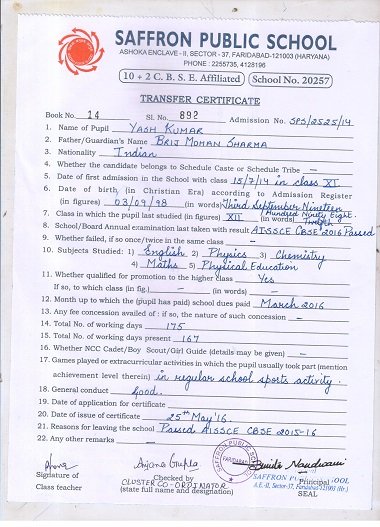 SAFFRON PUBLIC SCHOOL
ASHOKA ENCLAVE - II, SECTOR - 37, FARIDABAD-121003 (HARYANA)
PHONE : 2255735, 4128196
10 + 2 C. B. S. E. Affiliated School No. 20257
TRANSFER CERTIFICATE
Book No. 14 Sl. No. 892 Admission No. SPS/2525/14
1. Name of Pupil YASH KUMAR
2. Father/Guardian's Name BRIJ MOHAN SHARMA
3. Nationality Indian
4. Whether the candidate belongs to Schedule Caste or Schedule Tribe –
5. Date of first admission in the School with class 15/7/14 in class XI
6. Date of birth (in Christian Era) according to Admission Register
(in figures) 03/09/98 (in words) Third September Nineteen
Hundred Ninty Eight.
7. Class in which the pupil last studied (in figures) XII (in words) Twelfth
8. School/Board Annual examination last taken with result AISSCE CBSE 2016 Passed
9. Whether failed, if so once/twice in the same class –
10. Subjects Studied: 1) English 2) Physics 3) Chemistry
4) Maths 5) Physical Education
11. Whether qualified for promotion to the higher class Yes
If so, to which class (in fig.) – (in words) –
12. Month up to which the (pupil has paid) school dues paid March 2016
13. Any fee concession availed of : if so, the nature of such concession –
14. Total No. of working days 175
15. Total No. of working days present 167
16. Whether NCC Cadet/Boy Scout/Girl Guide (details may be given) –
17. Games played or extracurricular activities in which the pupil usually took part (mention
achievement level therein) in regular school sports activity.
18. General conduct Good.
19. Date of application for certificate –
20. Date of issue of certificate 25th May'16
21. Reasons for leaving the school Passed AISSCE CBSE 2015-16
22. Any other remarks –
SAFFRON PUBLIC SCHOOL
FARIDABAD
Signature of
Class teacher
Checked by
CLUSTER CO-ORDINATOR
(state full name and designation)
SAFFRON PUBLIC SCHOOL
Principal
A.E.-II, Sector-37, Faridabad-121003 (Hr.)
SEAL